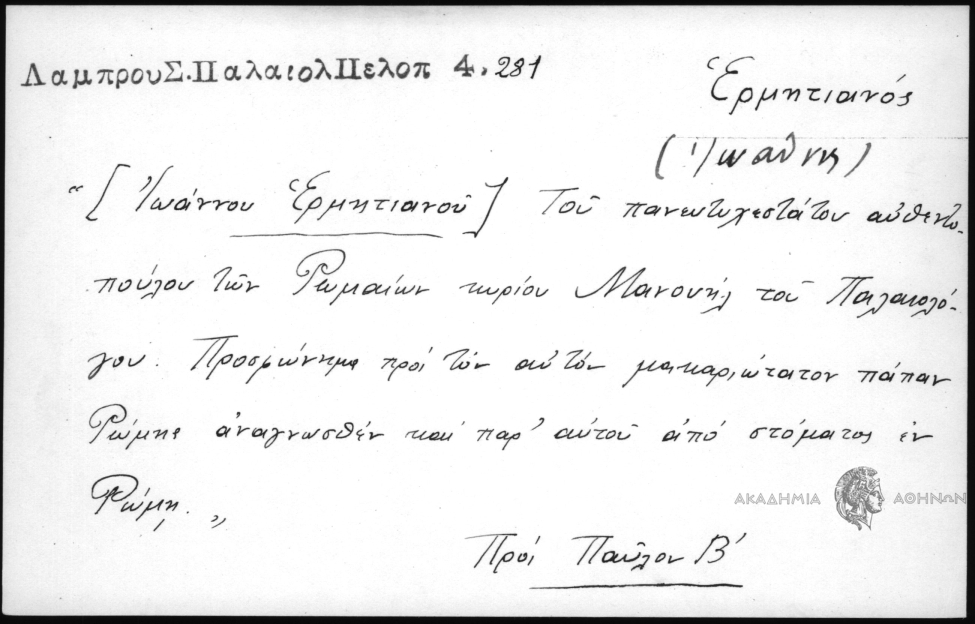 ΛαμπρουΣ.ΠαλαιολΠελοπ 4. 281
Ἑρμητιανός
(Ἰωάννης)
"[Ἰωάννου Ἑρμητιανοῦ] Τοῦ πανευτυχεστάτου αὐθεντο-
πούλου τῶν Ρωμαίων κυρίου Μανουὴλ τοῦ Παλαιολό-
γου. Προσφώνημα πρὸς τὸν αὐτὸν μακαριώτατον πάπαν
Ρώμης ἀναγνωσθὲν καὶ παρ' αὐτοῦ ἀπὸ στόματος ἐν
Ρώμῃ. "
ΑΚΑΔΗΜΙΑ ΑΘΗΝΩΝ
Πρὸς Παῦλον Β'